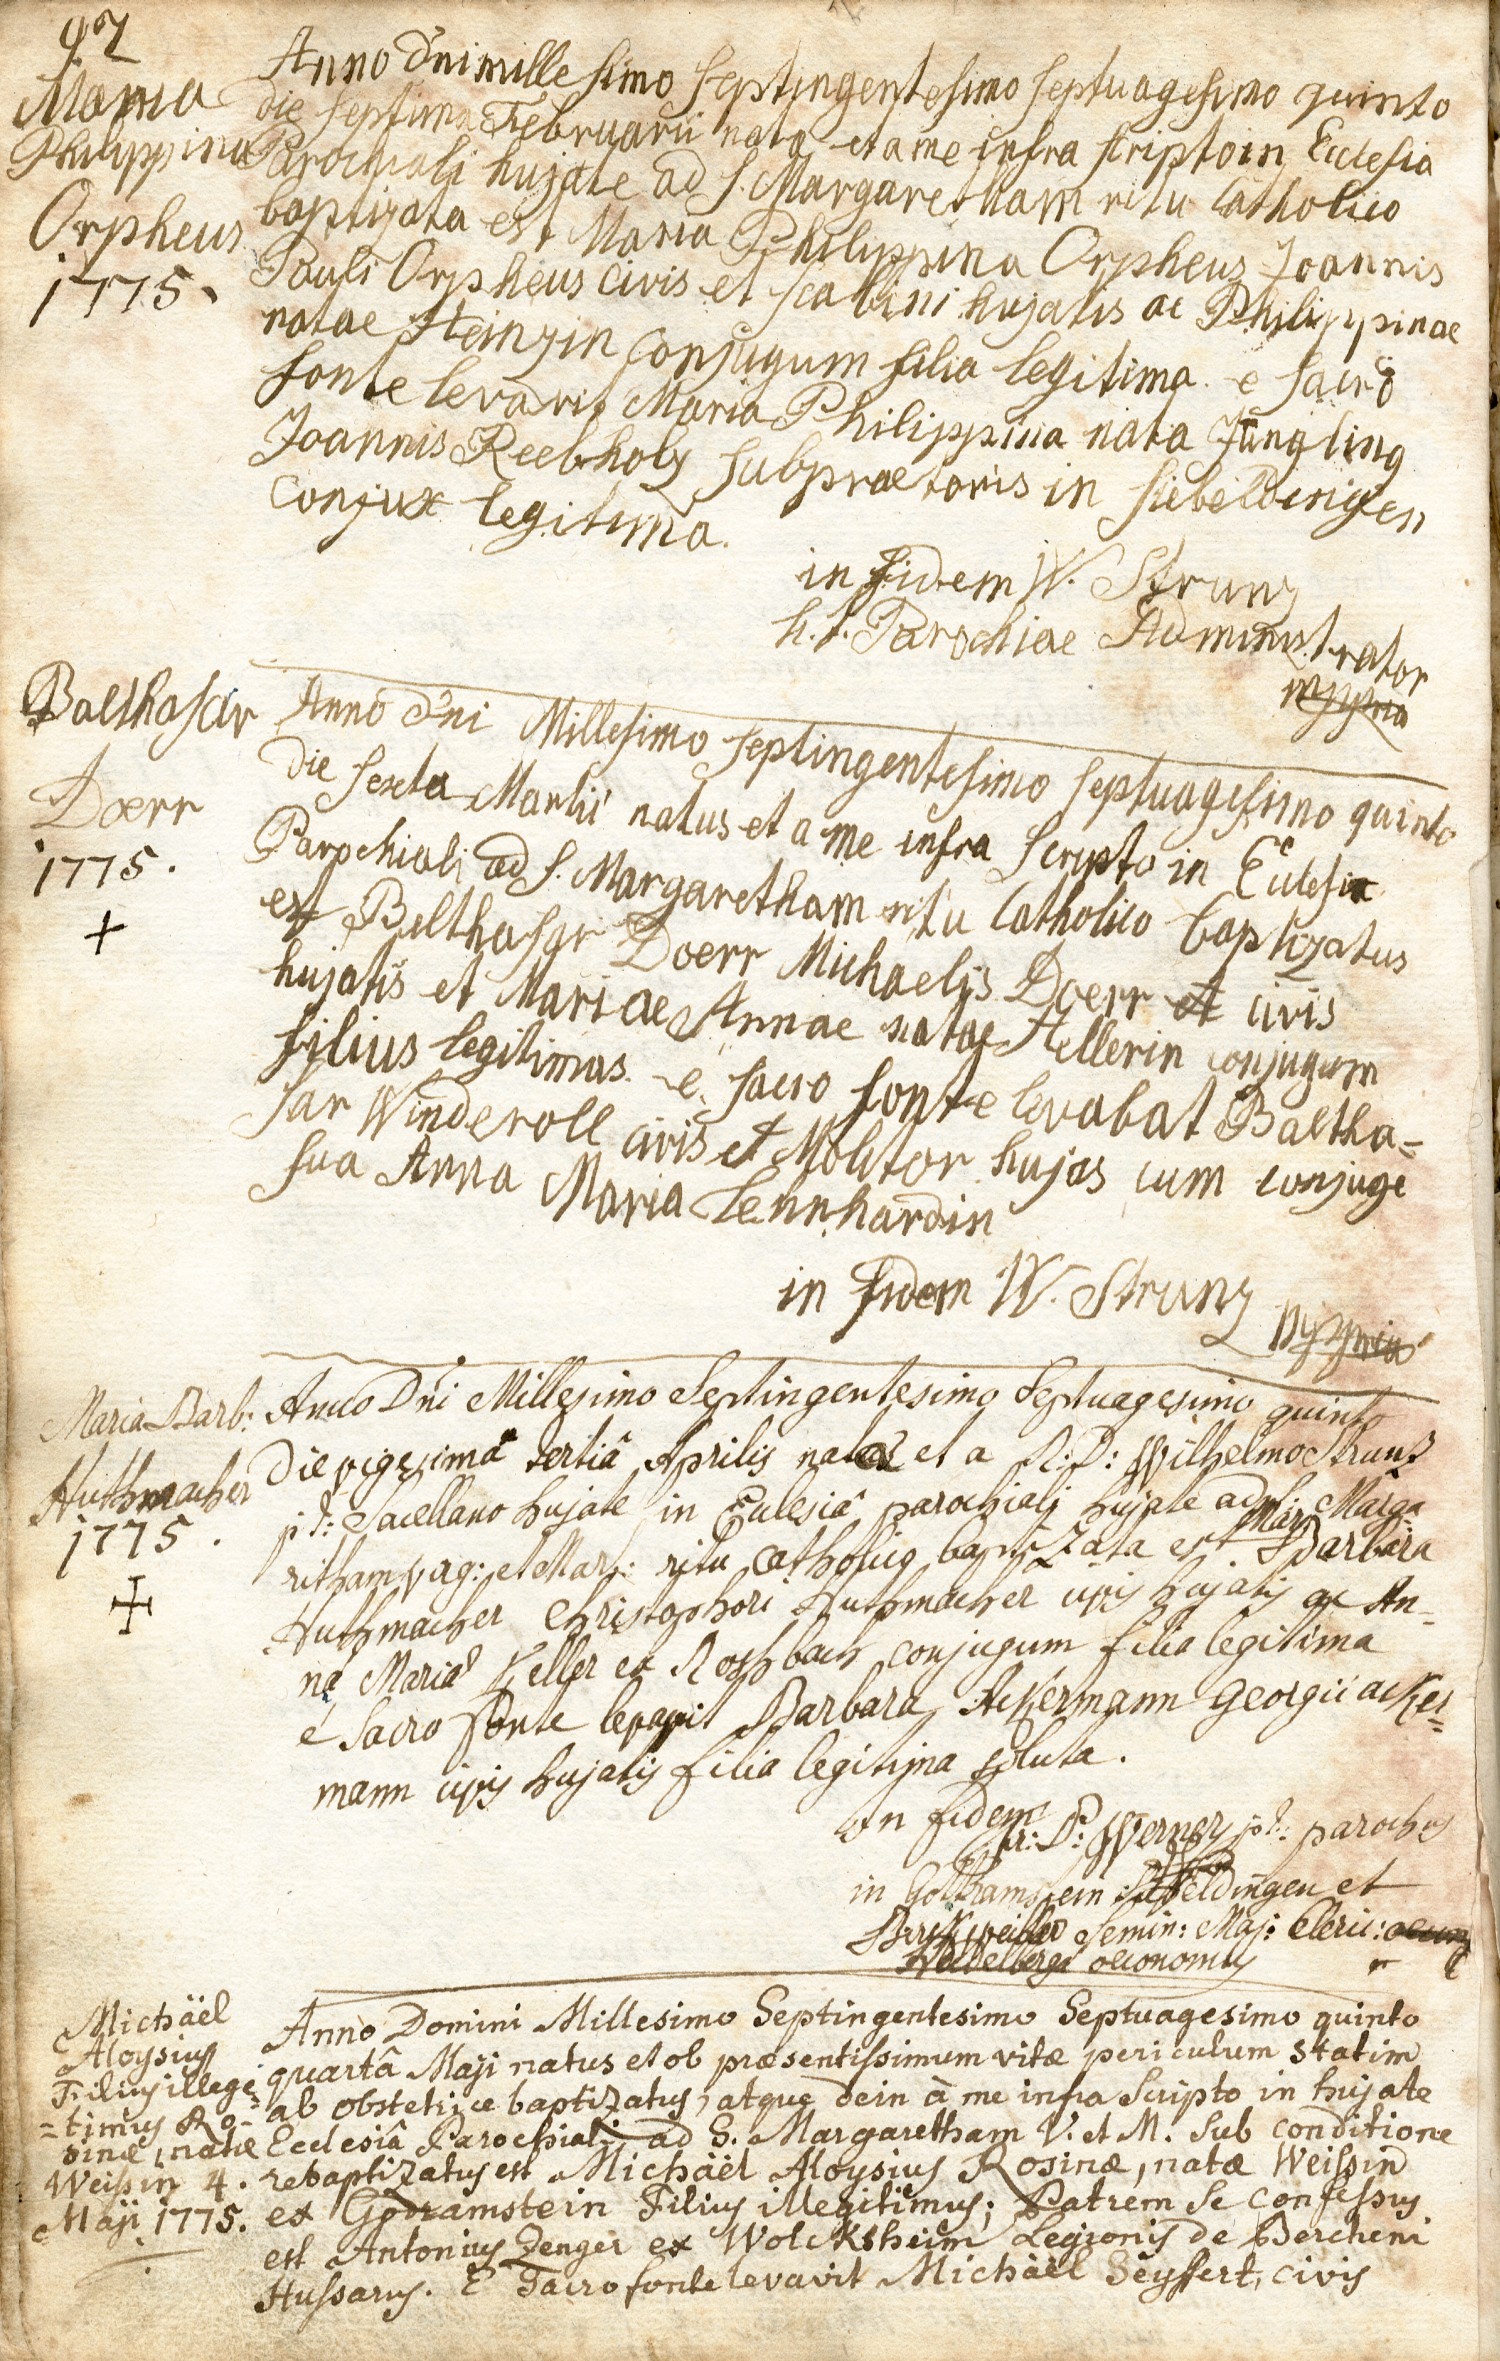 92
Maria
Philippina
Orpheus
1775.
Anno d'ni millesimo septingentesimo septuagesimo quinto
die septima Februarii nata et a me infra scripto in Eclesia
Parochiali hujate ad S. Margaretham ritu catholico
baptizata est Maria Philippina Orpheus Joannis
Pauli Orpheus civis et scabini hujatis ac Philippinae
natae Heinzin conjugum filia legitima. e sacro
fonte levavit Maria Philippina nata Jüngling
Joannis Reebholz subpraetoris in siebeldengen
conjux legitima.
in fidem W. Strunz
h. t. Parochiae Administrator
mppria
Balthasar
Doerr
1775.
+
Anno d'ni Millesimo septingentesimo septuagesimo quinto
die sexta Martii natus et a me infra scripto in Eclesia
Parochiali ad S. Margaretham ritu catholico baptizatus
est Balthasar Doerr Michaelis Doerr et civis
hujatis et Mariae Annae natae Hellerin conjugum
filius legitimus. e sacro fonte levabat Baltha-
sar Winderoll civis et Molitor hujas cum conjuge
sua Anna Maria Lennhardin
in fidem W. Strunz
mppria
Maria Barb:
Huthmacher
1775.
Anno Dni Millesimo Septingentesimo Septuagesimo quinto
Die vigesimâ tertiâ Aprilis nata et a R: D: Wilhelmo Strunz
p.t: Sacellano hujate in Eclesiâ parochiali hujate ad S: Marga
ritham virg: et Mar: ritu catholico baptizata est Mar: Barbara
Huthmacher Christophori Huthmacher civis hujatis ac An-
na Maria Keller ex Roshbach conjugum filia legitima
e Sacro fonte levavit Barbara Ackermann Georgii acker=
mann civis hujatis filia legitima soluta.
in fidem
Werner p.t: parochus
in Gottramstein Sibeldingen et
Birckweiller Semin: Maj: Cleric:
Heidelbergæ oeconomus
Michäel
Aloysius
Filius illegi=
=timus Ro-
sinæ, natæ
Weissin 4.
Maji 1775.
Anno Domini Millesimo Septingentesimo Septuagesimo quinto
quartâ Maji natus et ob præsentissimum vitæ periculum statim
ab obstetrice baptizatus, atque dein à me infra scripto in hujate
Ecclesiâ Parochiali ad S. Margaretham V. et M. sub conditione
rebaptizatus est Michäël Aloysius Rosinæ, natæ Weissin
ex Godramstein Filius illegitimus; Patrem se confessus
est Antonius Zenger ex Wolcksheim Legionis de Bercheni
Hussarus. E Sacro fonte levavit Michäël Seyffert, civis